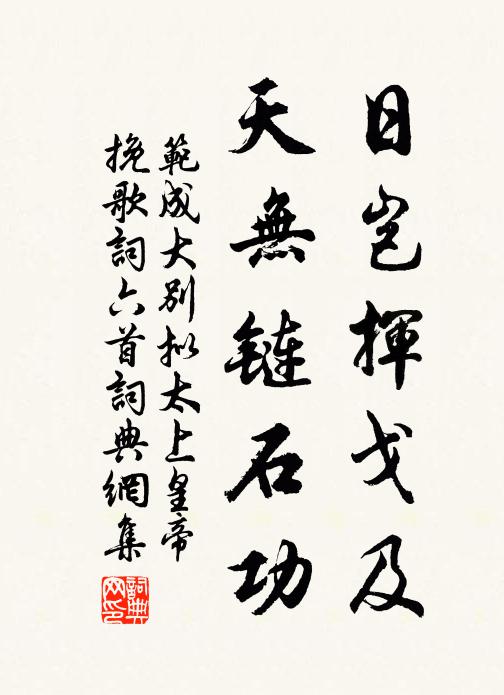 日豈揮戈及
天無鏈石功
範成大別擬太上皇帝
挽歌詞六首詞典網集
詞典网印